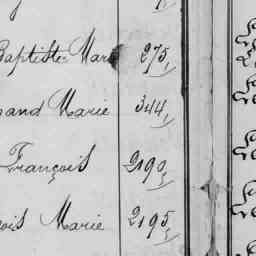 Baptiste Marie 275
and Marie 344
François 2190
ois Marie 2195